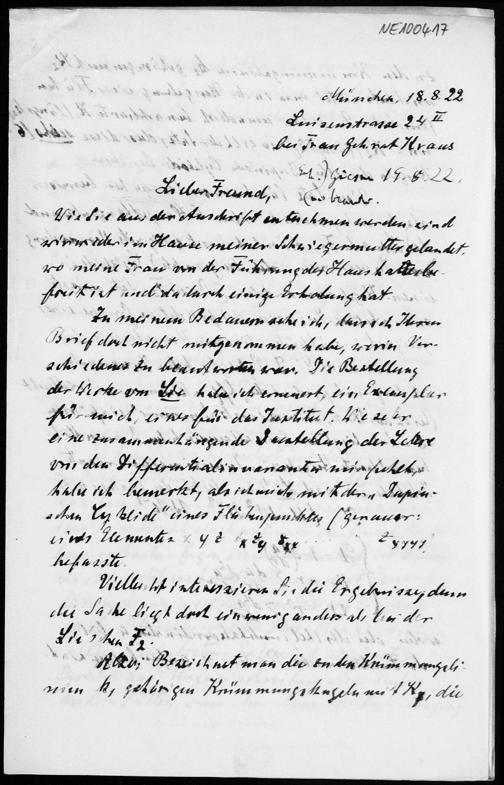 NE100417
München, 18.8.22
Luisenstrasse 24 II
bei Frau Geh.rat Kraus
Giessen 19.8.22.
Lieber Freund,
Wie Sie aus der Anschrift entnehmen werden sind
wir wieder im Hause meiner Schwiegermutter gelandet,
wo meine Frau von der Führung des Haushaltes be-
freit ist und dadurch einige Erholung hat.
Zu meinem Bedauern sehe ich, dass ich Ihren
Brief doch nicht mitgenommen habe, worin Ver-
schiedenes zu beantworten war. Die Bestellung
der Werke von Lie habe ich erneuert, ein Exemplar
für mich, eines für das Institut. Wie sehr
eine zusammenhängende Darstellung der Lehre
von den Differentialinvarianten mir fehlt,
habe ich bemerkt, als ich mich mit der „Dupin-
schen Cyklide" eines Flächenpunktes (genauer:
eines Elementes x y z
befasste.
Vielleicht interessieren Sie die Ergebnisse, denn
die Sache liegt doch ein wenig anders als bei der
Lieschen F2
Also: Bezeichnet man die zu den Krümmungsli-
nien k, gehörigen Krümmungskugeln mit K, die